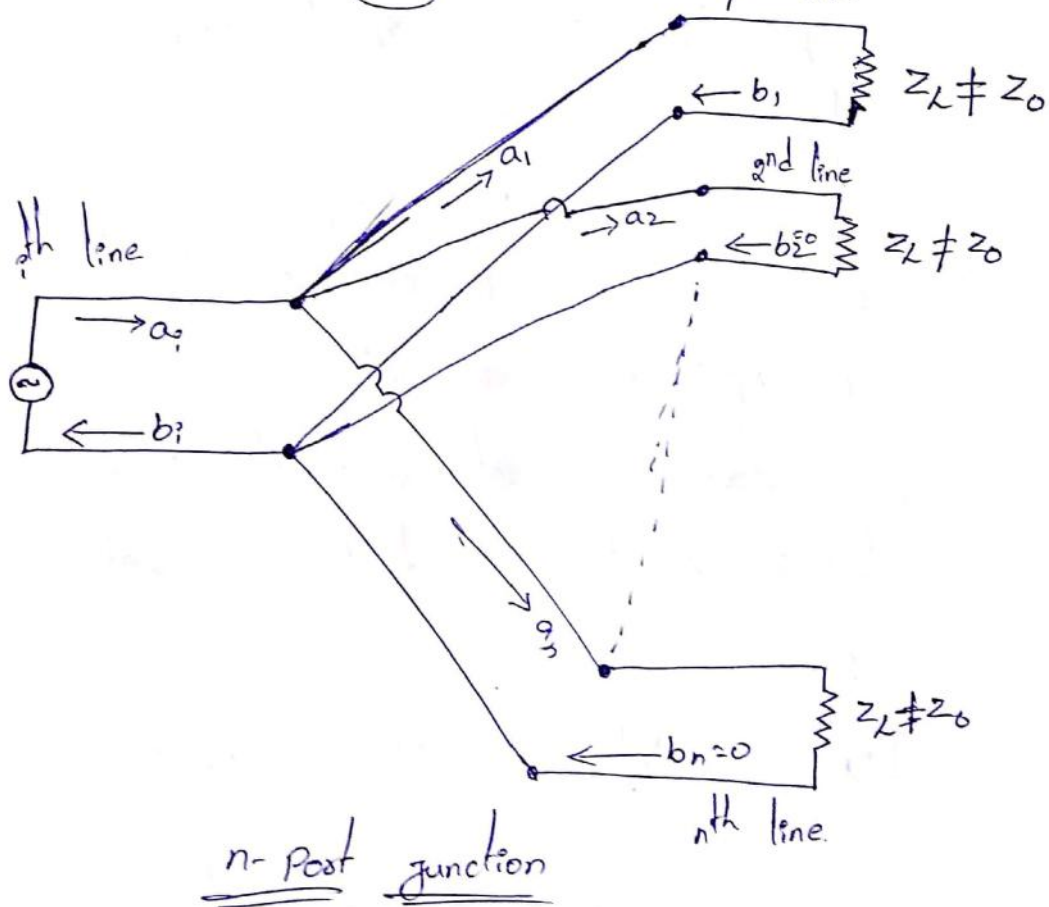 a₁
← b₁
Z_L ≠ Z₀
2nd line
→ a₂
← b₂=0
Z_L ≠ Z₀
ith line
→ aᵢ
~
← bᵢ
Z_L ≠ Z₀
← bₙ=0
nth line.
n- Port Junction